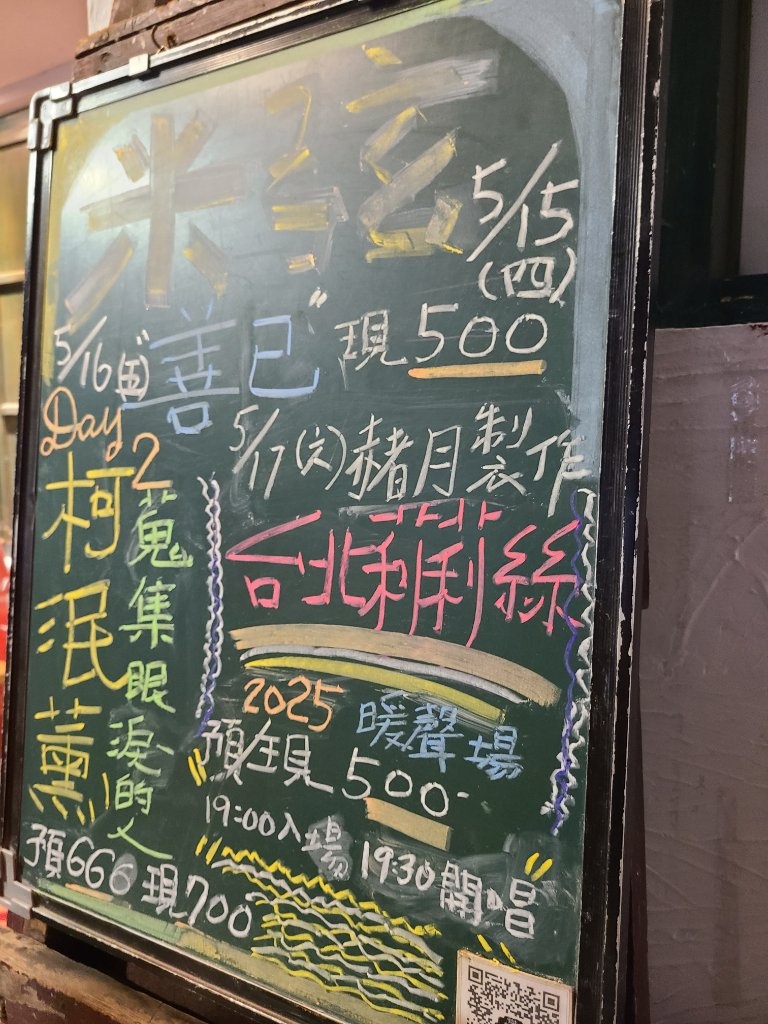 米弦
5/15
(四)
"善已"
現500
5/16(五)
Day 2
柯泯薰
蒐集眼淚的人
預666 現700
5/17(六)赭月製作
台北莉莉絲
2025 暖聲場
預/現 500
19:00入場 19:30開唱